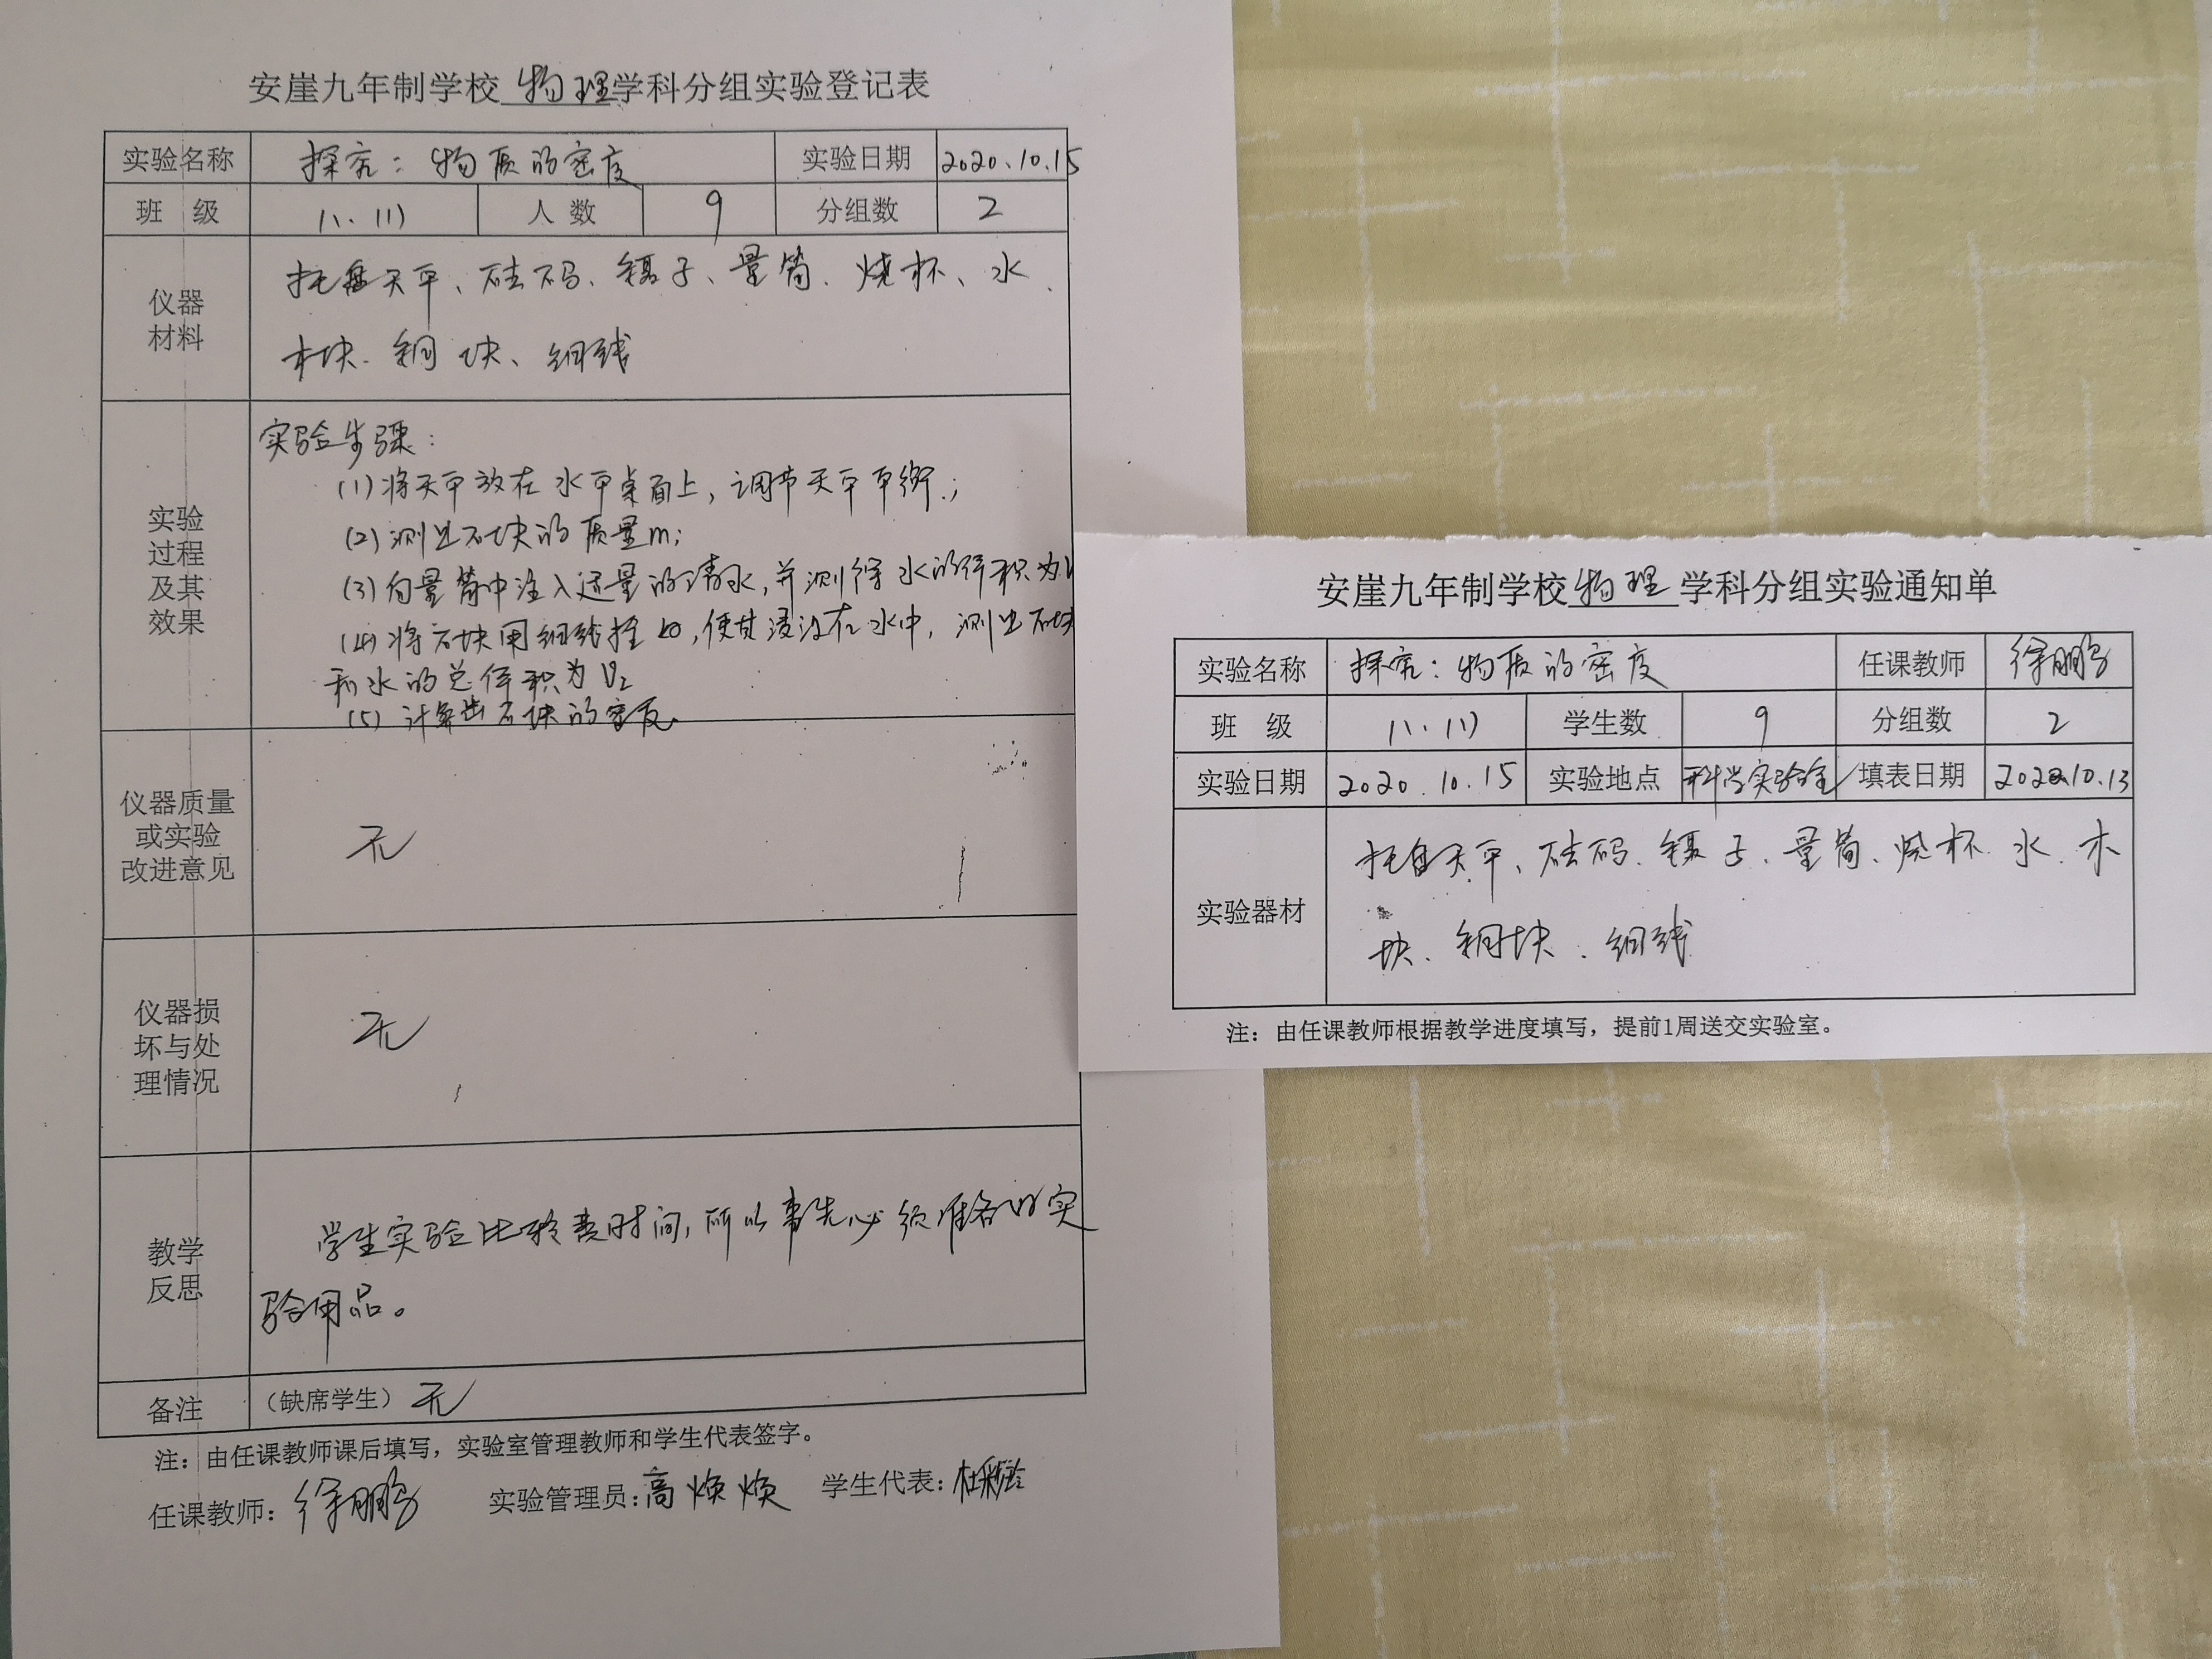 安崖九年制学校 物理 学科分组实验登记表
实验名称 探究：物质的密度 实验日期 2020.10.15
班 级 八.(1) 人 数 9 分组数 2
仪器
材料
托盘天平、砝码、镊子、量筒、烧杯、水、
木块、铜块、细线
实验
过程
及其
效果
实验步骤：
(1)将天平放在水平桌面上，调节天平平衡；
(2)测出石块的质量m；
(3)向量筒中注入适量的清水，并测得水的体积为V
(4)将石块用细线拴好，使其浸没在水中，测出石块
和水的总体积为V2
(5)计算出石块的密度.
仪器质量
或实验
改进意见
无
仪器损
坏与处
理情况
无
教学
反思
学生实验比较费时间，所以事先必须准备好实
验用品。
备注 （缺席学生）无
注：由任课教师课后填写，实验室管理教师和学生代表签字。
任课教师：徐鹏 实验管理员：高焕焕 学生代表：杜
安崖九年制学校 物理 学科分组实验通知单
实验名称 探究：物质的密度 任课教师 徐鹏
班 级 八.(1) 学生数 9 分组数 2
实验日期 2020.10.15 实验地点 科学实验室 填表日期 2020.10.13
实验器材
托盘天平、砝码、镊子、量筒、烧杯、水、木
块、铜块、细线
注：由任课教师根据教学进度填写，提前1周送交实验室。